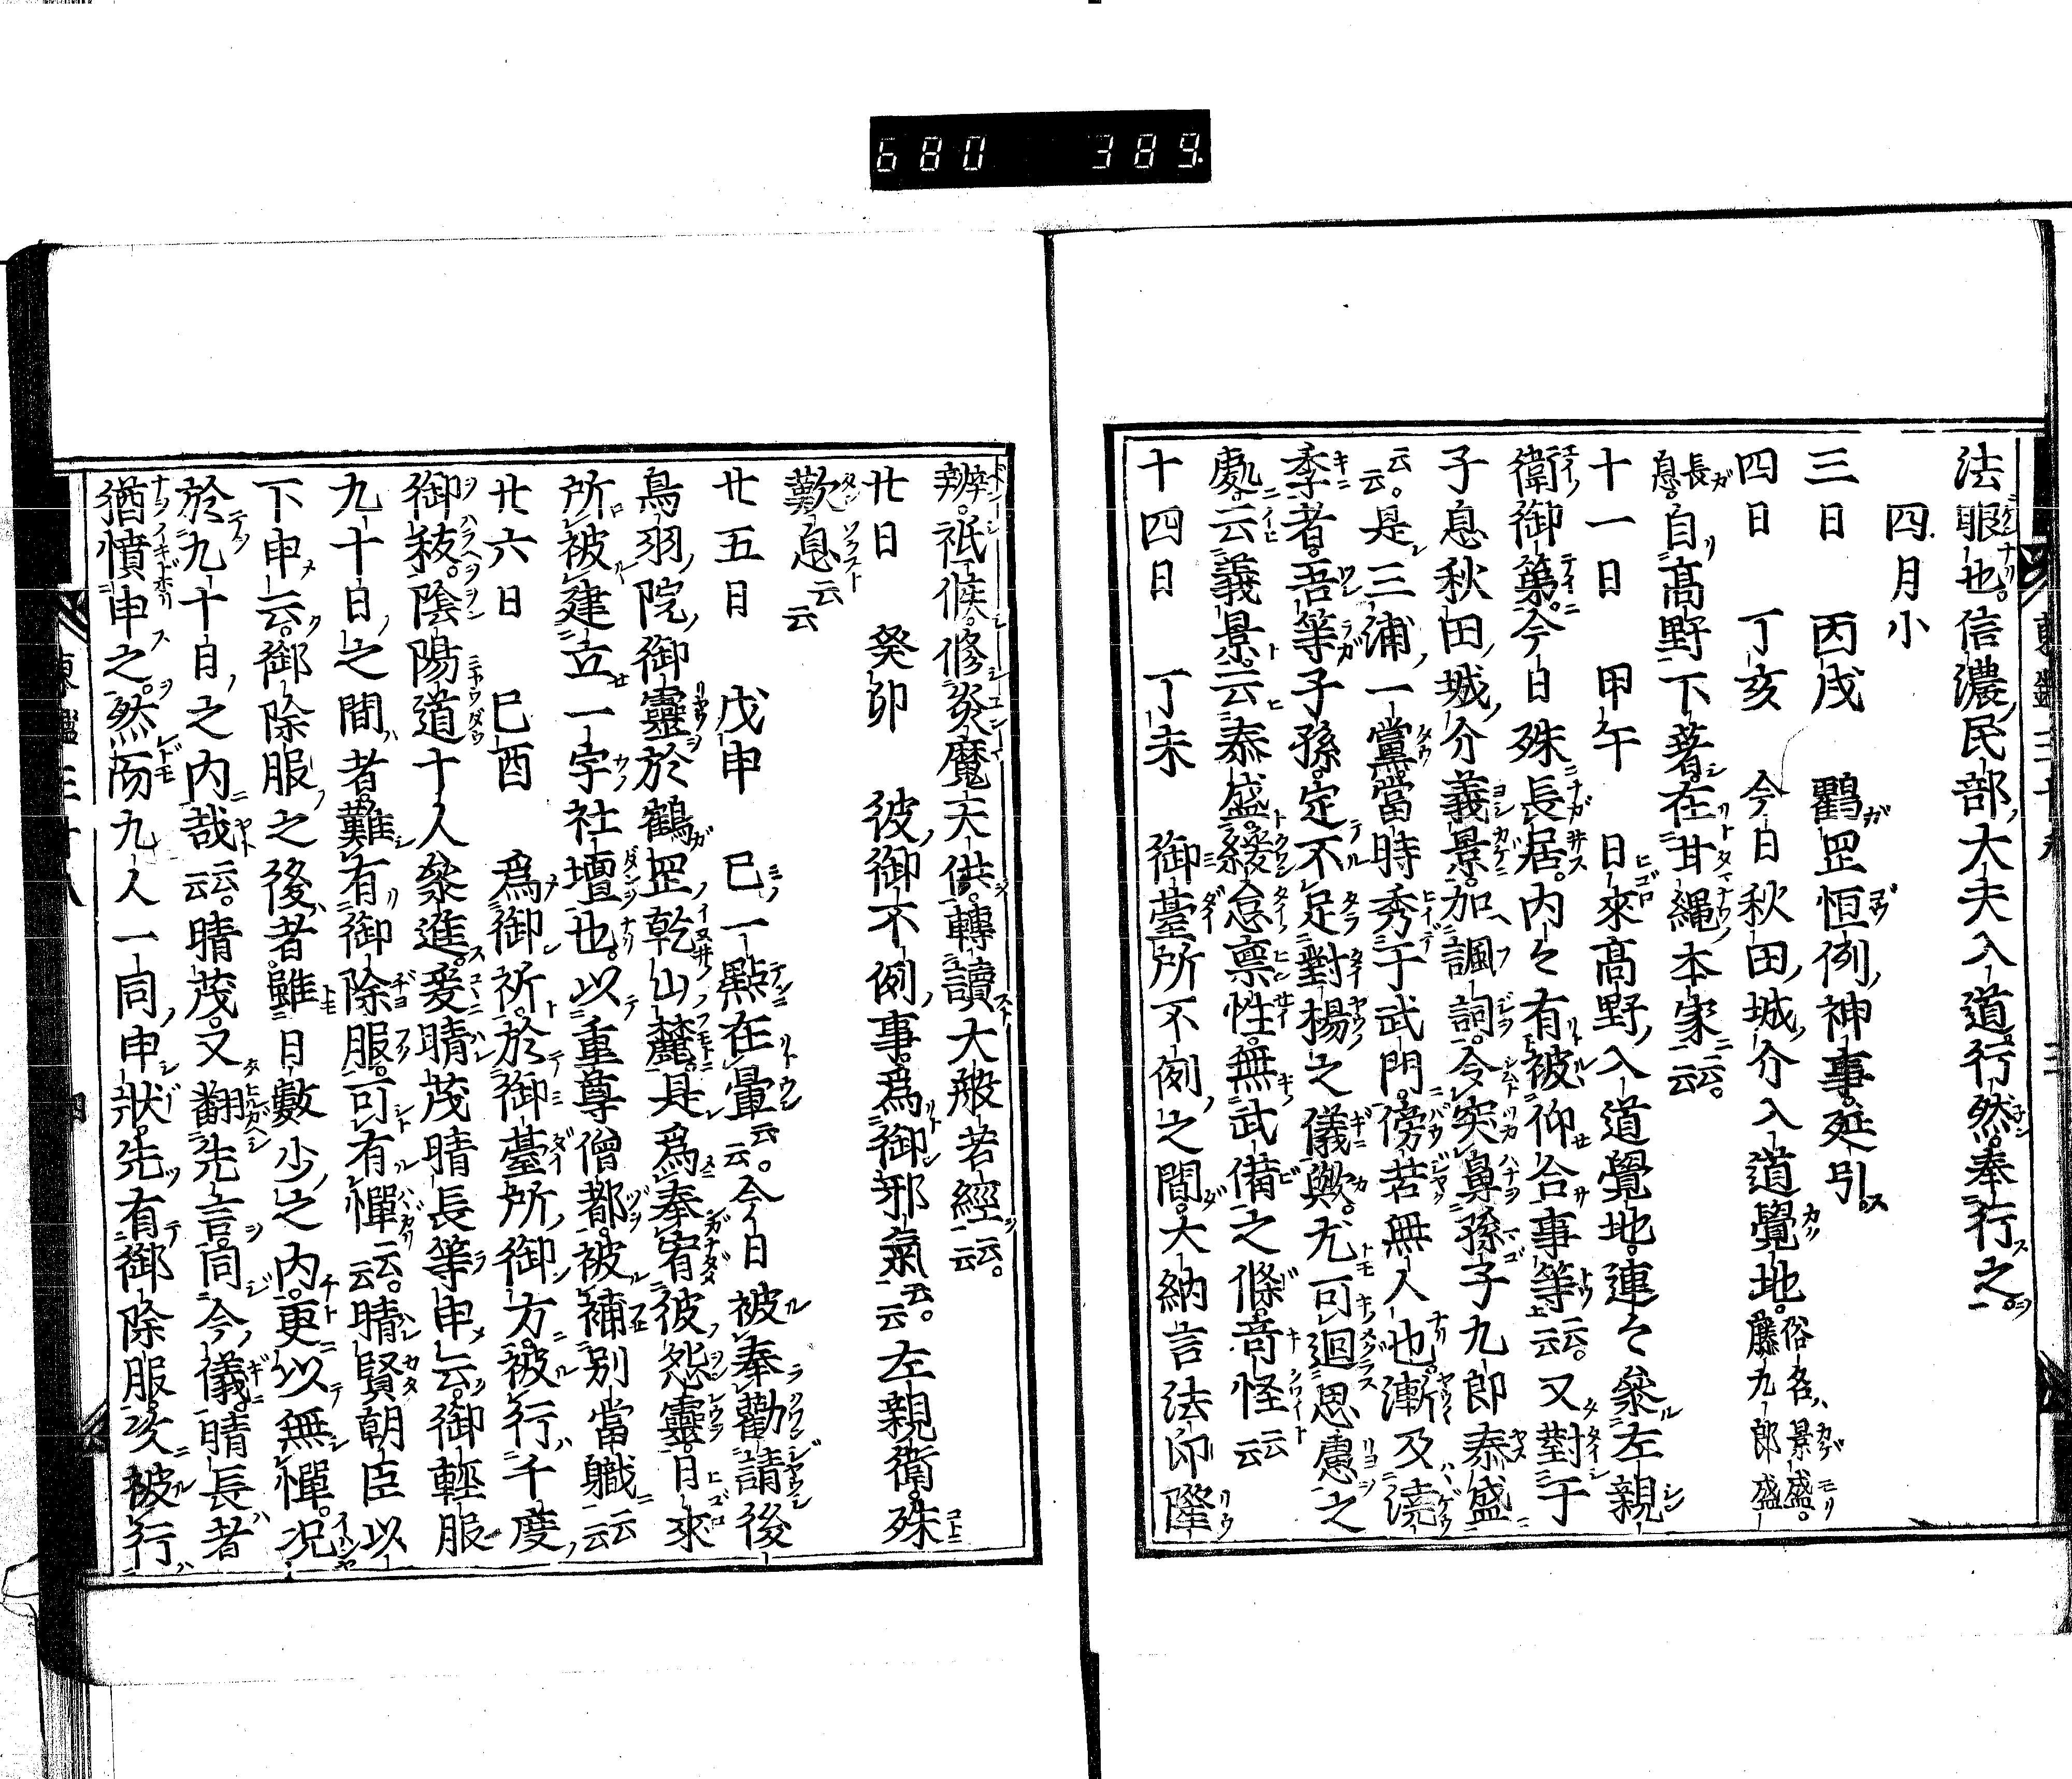 680 389
法眼也。信濃民部大夫入道行然。奉行之。
四月小
三日 丙戌 鶴罡恒例神事。延引。
四日 丁亥 今日秋田城介入道覺地。俗名景盛。藤九郎盛
長息。自髙野下著。在甘縄本家云云。
十一日 甲午 日來髙野入道覺地。連々參左親
衛御第。今日殊長居。内々有被仰合事等云云。又對于
子息秋田城介義景。加諷詞。令突鼻孫子九郎泰盛
云云。是三浦一黨。當時秀于武門。傍若無人也。漸及澆
季者。吾等子孫。定不足對揚之儀歟。尤可迴思慮之
處。云義景。云泰盛。緩怠禀性。無武備之條。竒怪云云
十四日 丁未 御臺所不例之間。大納言法印隆
辨。祗候。修炎魔天供。轉讀大般若經云云。
廿日 癸卯 彼御不例事。爲御邪氣云云。左親衛。殊
歎息云云
廿五日 戊申 巳一點在暈云云。今日被奉勸請後
鳥羽院御靈於鶴罡乾山麓。是爲奉宥彼怨靈。日來
所被建立一宇社壇也。以重尊僧都。被補別當職云云
廿六日 巳酉 爲御祈。於御臺所御方。被行千度
御秡。陰陽道十人參進。爰晴茂晴長等申云。御輕服
九十日之間者。難有御除服。可有憚云云。晴賢朝臣以
下申云。御除服之後者。雖日數少之内。更以無憚。况
於九十日之内哉云云。晴茂。又翻先言。同今儀。晴長者
猶憤申之。然而九人一同申狀。先有御除服。次被行
東鑑三十八 三
東鑑三十八 四